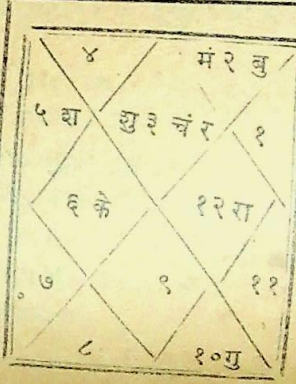 ४ मं २ बु
५ श शु ३ चं र १
६ के १२ रा
७ ९ ११
८ १० गु